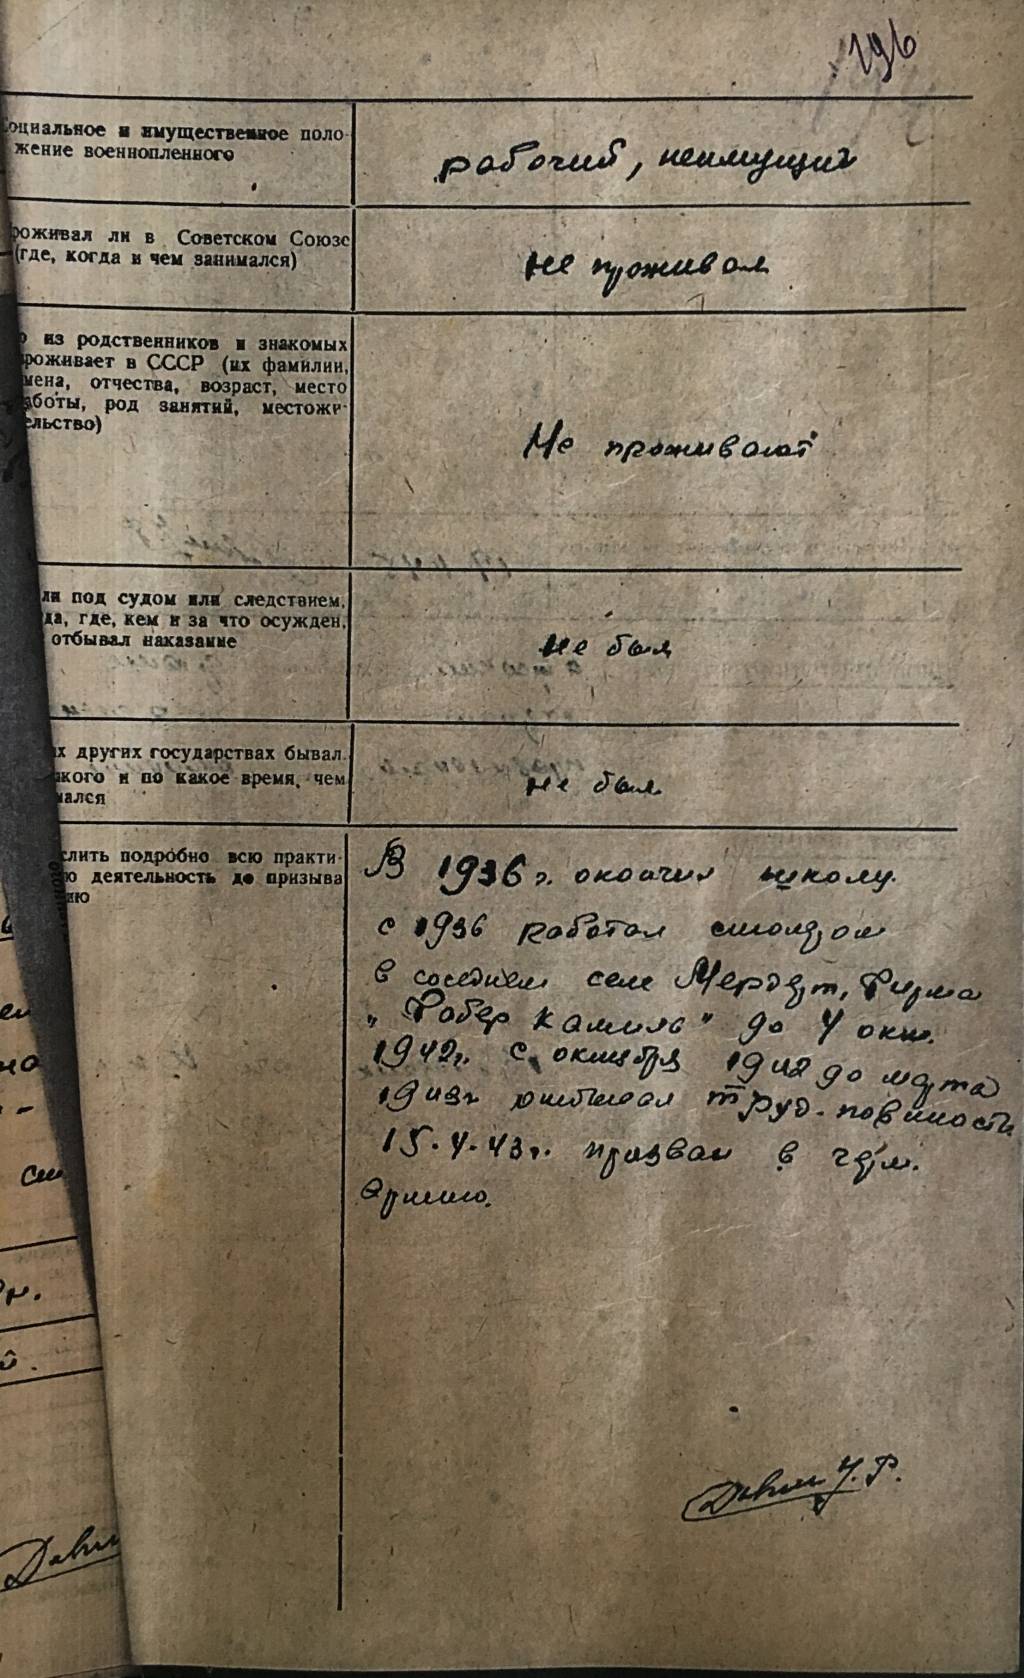 196
Социальное и имущественное поло-
жение военнопленного
рабочий, неимущий
роживал ли в Советском Союзе
(где, когда и чем занимался)
не проживал
о из родственников и знакомых
роживает в СССР (их фамилии,
мена, отчества, возраст, место
аботы, род занятий, местожи-
ельство)
Не проживают
ли под судом или следствием,
да, где, кем и за что осужден,
отбывал наказание
не был
их других государствах бывал.
акого и по какое время, чем
мался
не был
слить подробно всю практи-
ю деятельность до призыва
ию
В 1936 г. окончил школу
с 1936 работал столяром
в соседнем селе Мерцт, Фирма
"Робер Камиль" до 4 окт.
1942г. с октября 1942 до марта
1943г отбывал труд. повиности
15.4.43г. призван в герм.
армию.
У. Р.